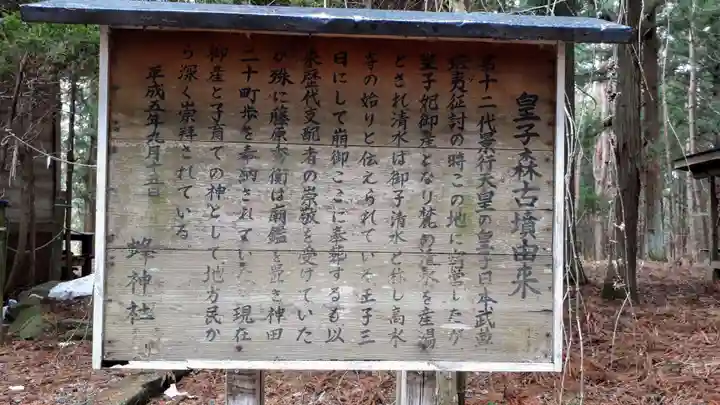 皇子森古墳由来
第十二代景行天皇の皇子日本武尊
蝦夷征討の時この地に宿営したが
皇子妃御産となり麓の温泉を産湯
とされ清水は御子清水と称し高水
寺の始りと伝えられている王子三
日にして崩御ここに奉葬する以
来歴代支配者の崇敬を受けていた
が殊に藤原秀衡は 鑑を置き神田
二十町歩を奉納されていた 現在
御産と子育ての神として地方民か
ら深く崇拝されている
平成五年九月十五日
蜂神社